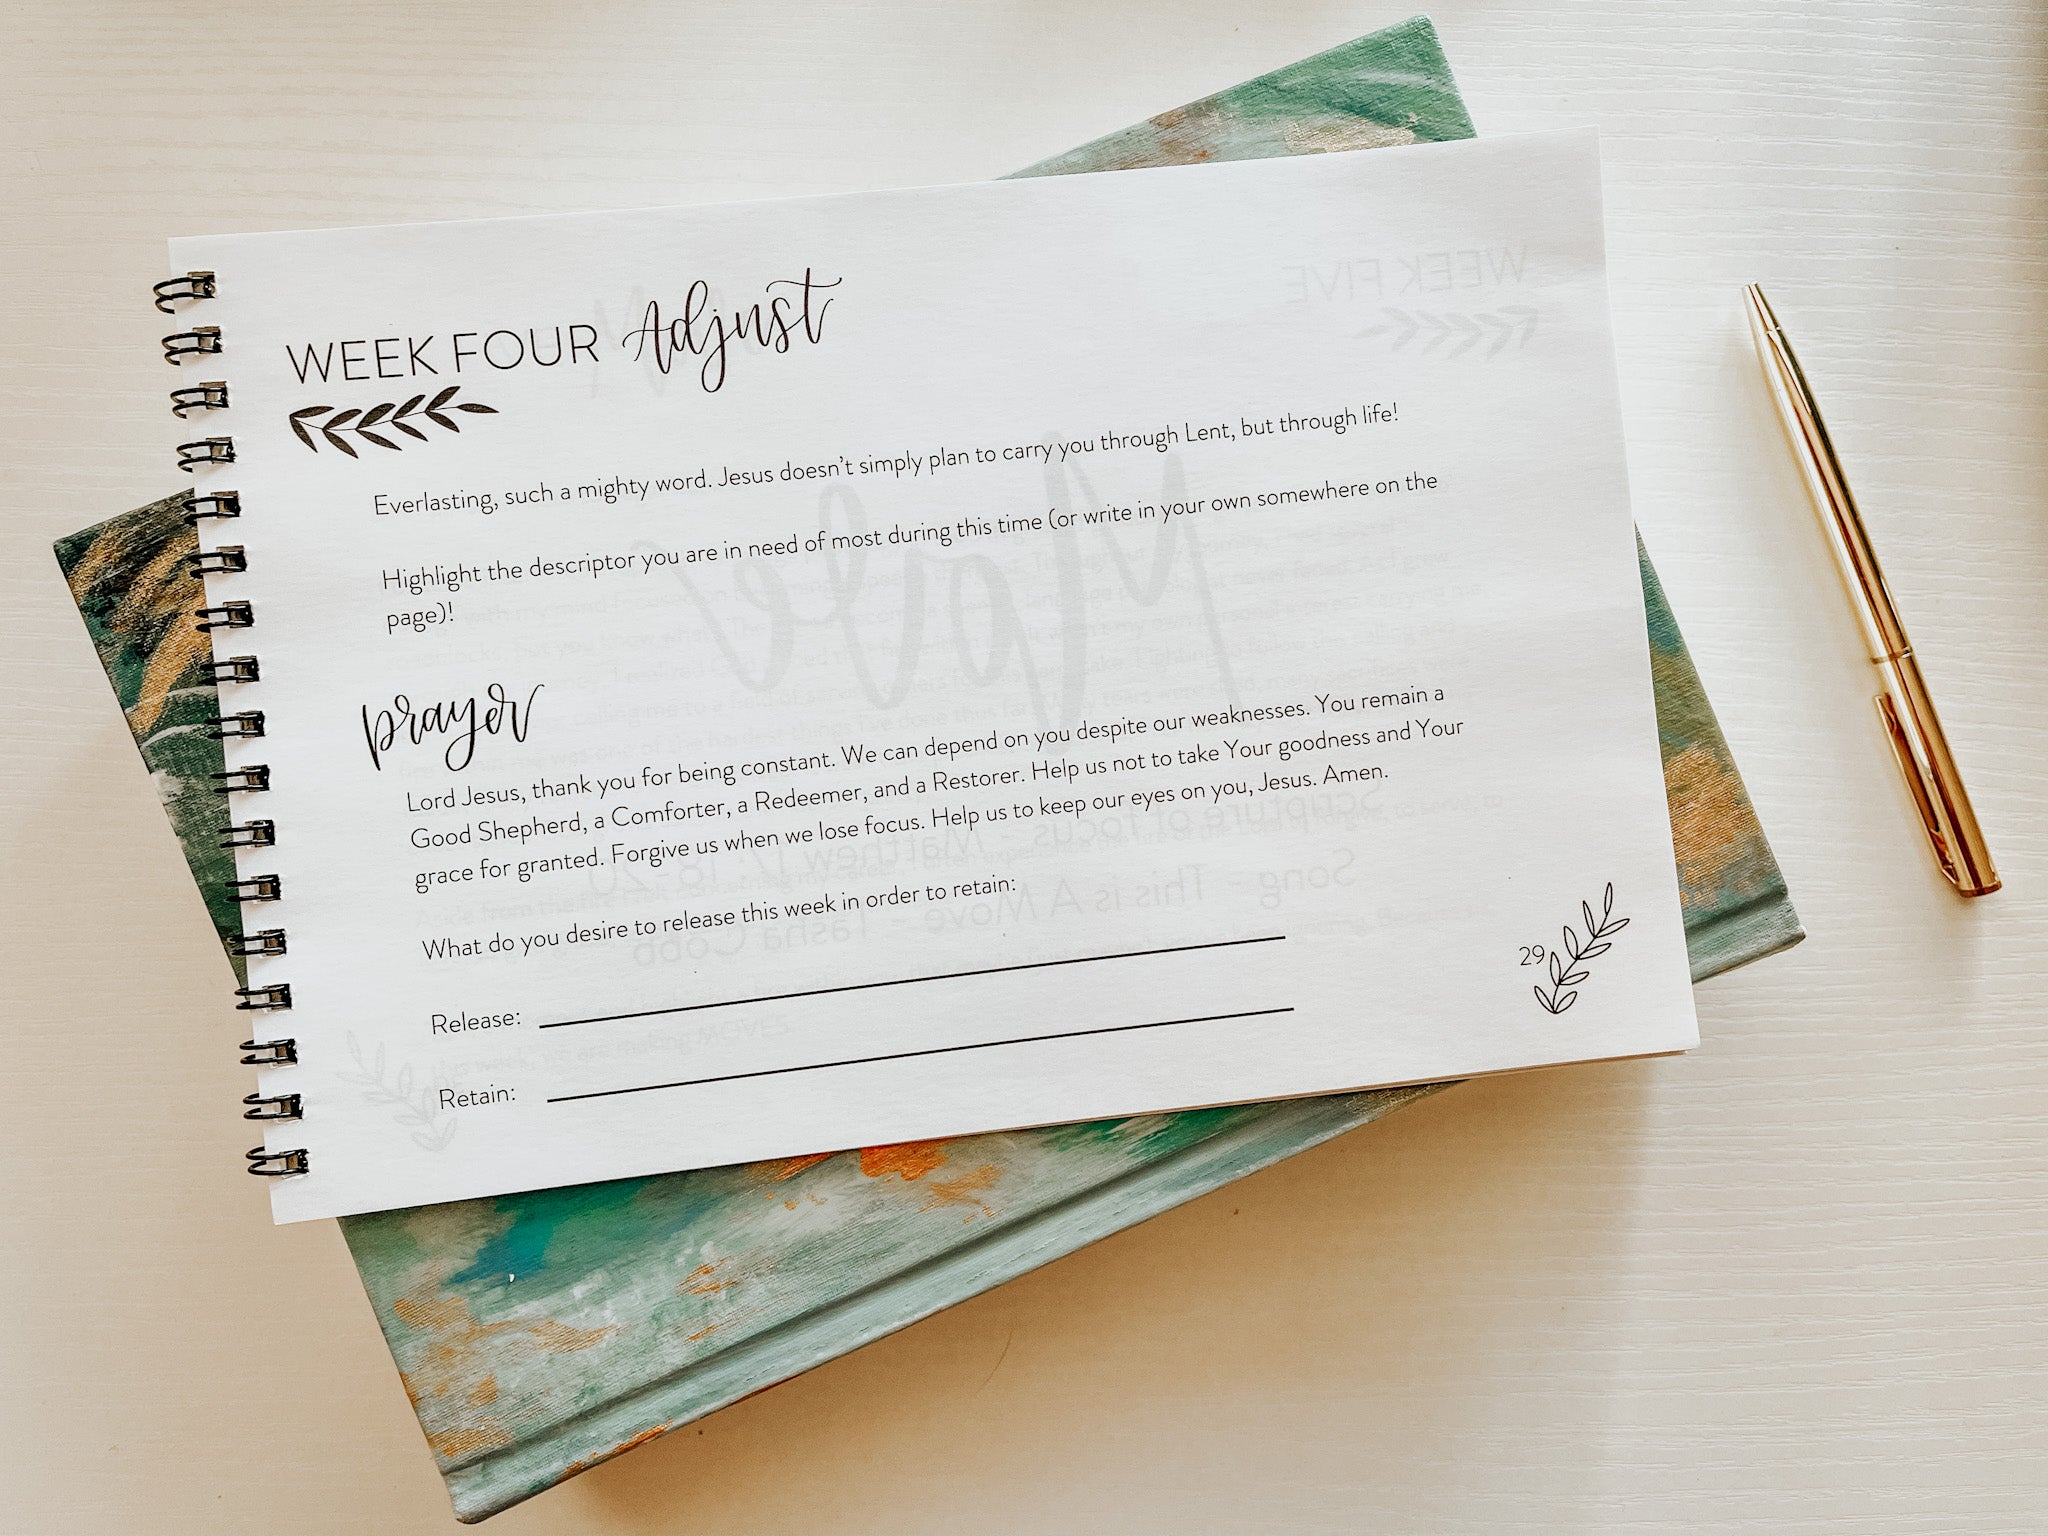 WEEK FOUR Adjust
Everlasting, such a mighty word. Jesus doesn't simply plan to carry you through Lent, but through life!
Highlight the descriptor you are in need of most during this time (or write in your own somewhere on the
page)!
prayer
Lord Jesus, thank you for being constant. We can depend on you despite our weaknesses. You remain a
Good Shepherd, a Comforter, a Redeemer, and a Restorer. Help us not to take Your goodness and Your
grace for granted. Forgive us when we lose focus. Help us to keep our eyes on you, Jesus. Amen.
What do you desire to release this week in order to retain:
Release:
Retain:
29
WEEK FIVE
Scripture of focus - Matthew 17:18-20
Song - This is A Move - Tasha Cobb